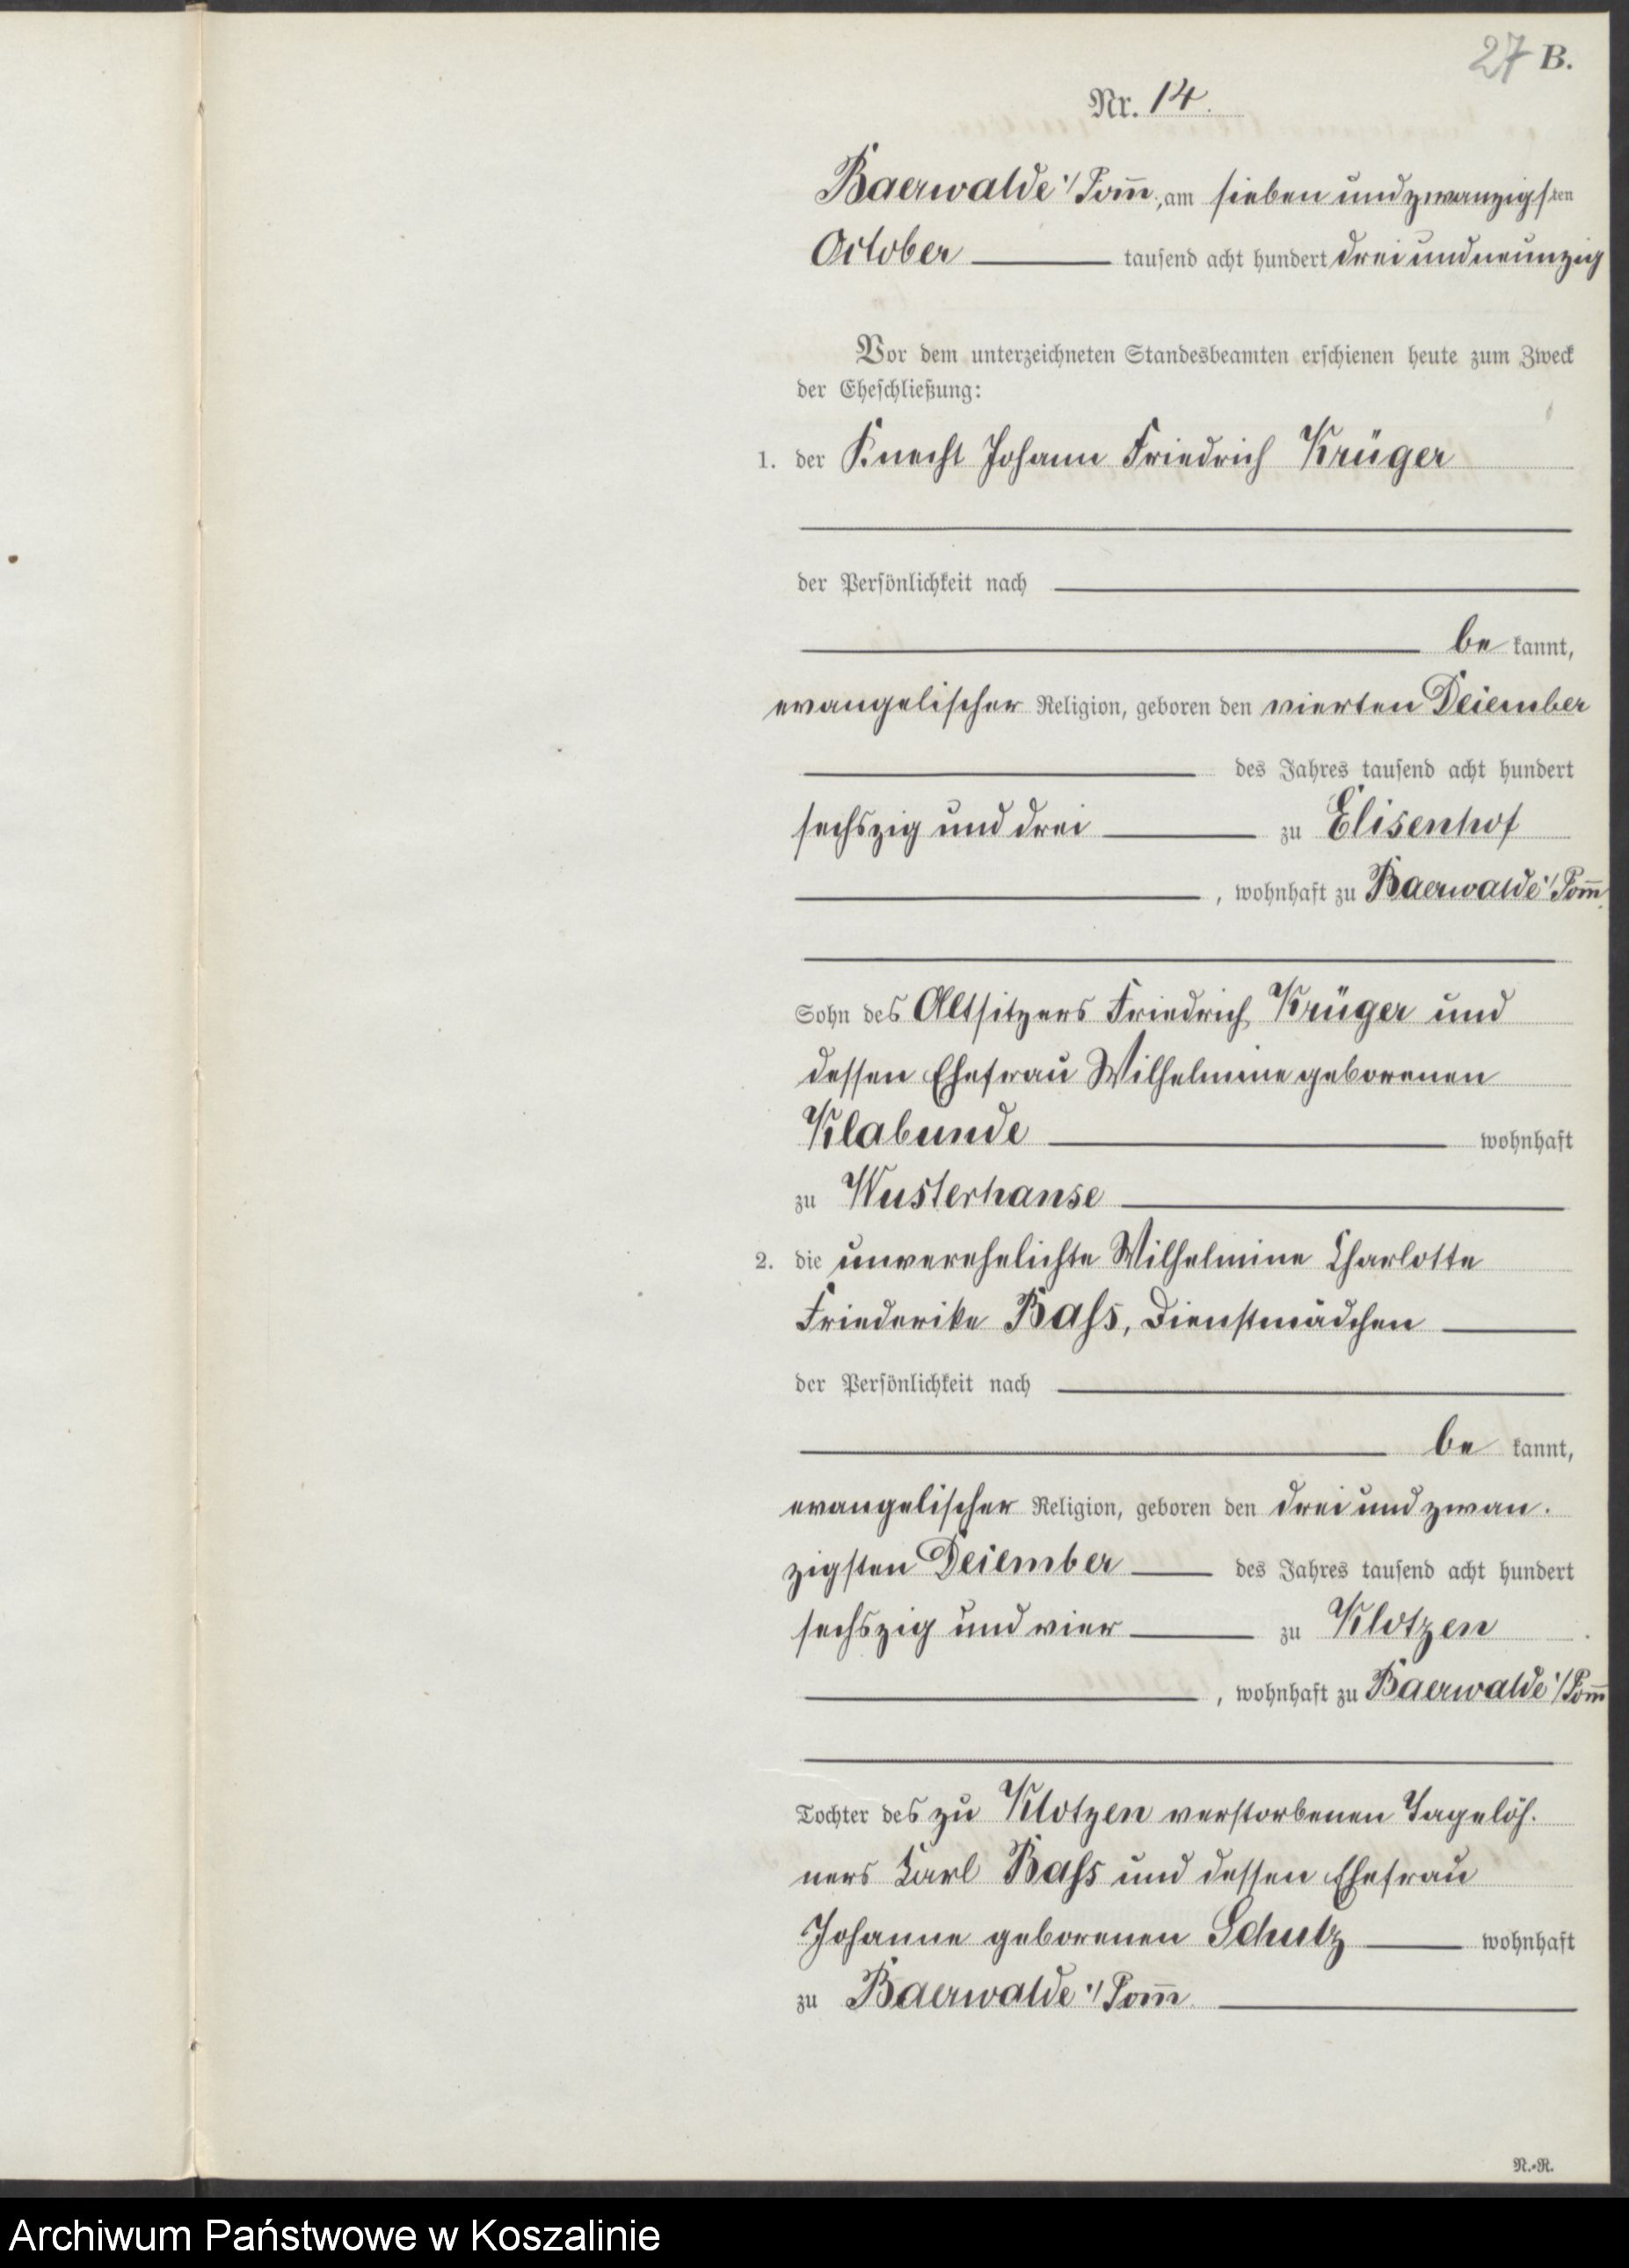 27 B.
Nr. 14.
Baerwalde i/Pom̅., am sieben und zwanzigsten
October tausend acht hundert drei und neunzig
Vor dem unterzeichneten Standesbeamten erschienen heute zum Zweck
der Eheschließung:
1. der Knecht Johann Friedrich Krüger
der Persönlichkeit nach
be kannt,
evangelischer Religion, geboren den vierten December
des Jahres tausend acht hundert
sechszig und drei zu Elisenhof
, wohnhaft zu Baerwalde i/Pom̅.
Sohn des Altsitzers Friedrich Krüger und
dessen Ehefrau Wilhelmine geborenen
Klabunde wohnhaft
zu Wusterhanse
2. die unverehelichte Wilhelmine Charlotte
Friederike Baſs, Dienstmädchen
der Persönlichkeit nach
be kannt,
evangelischer Religion, geboren den drei und zwan-
zigsten December des Jahres tausend acht hundert
sechszig und vier zu Klotzen
, wohnhaft zu Baerwalde i/Pom̅
Tochter des zu Klotzen verstorbenen Tagelöh-
ners Karl Baſs und dessen Ehefrau
Johanne geborenen Schulz wohnhaft
zu Baerwalde i/Pom̅.
N.-N.
Archiwum Państwowe w Koszalinie